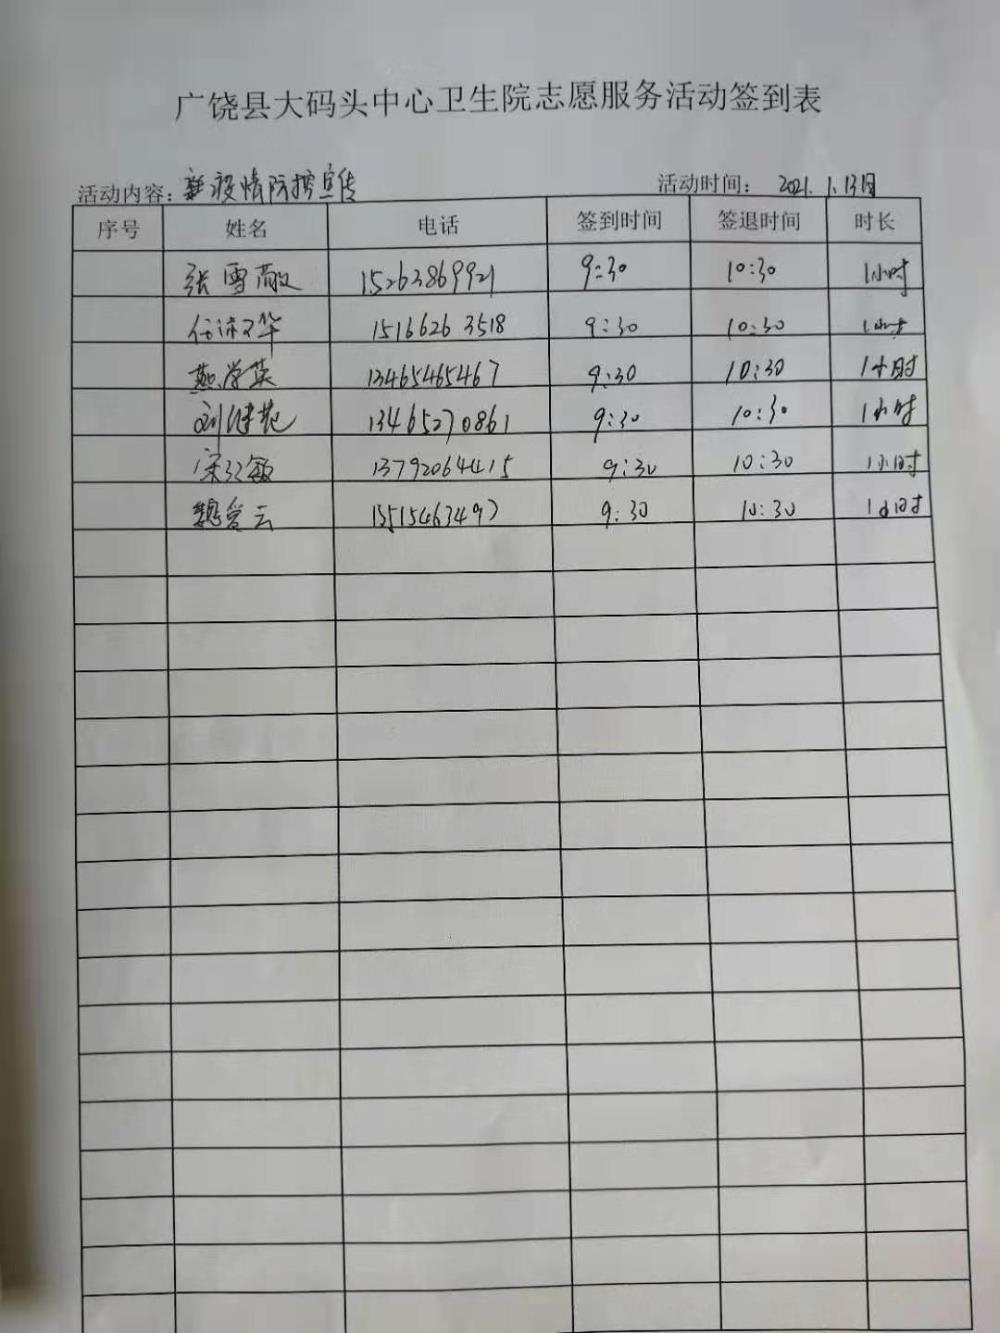 广饶县大码头中心卫生院志愿服务活动签到表
活动内容: 疫情防控宣传 活动时间: 2021.1.13日
序号 姓名 电话 签到时间 签退时间 时长
张雪敏 15263869921 9:30 10:30 1小时
15166263518 9:30 10:30 1小时
燕学英 13465465467 9:30 10:30 1小时
刘建苑 13465270861 9:30 10:30 1小时
宋 敏 13792064415 9:30 10:30 1小时
魏爱云 13515463497 9:30 10:30 1小时